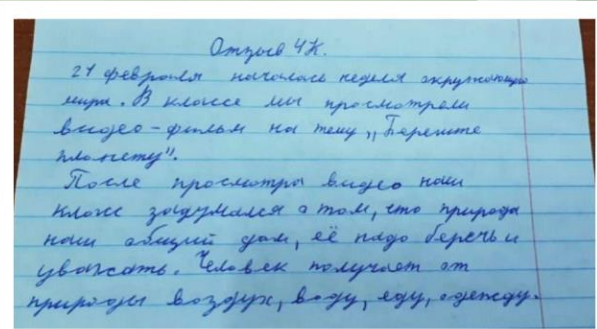 Отзыв 4К.
21 февраля началась неделя окружающего
мира. В классе мы просмотрели
видео-фильм на тему „Берегите
планету".
После просмотра видео наш
класс задумался о том, что природа
наш общий дом, её надо беречь и
уважать. Человек получает от
природы воздух, воду, еду, одежду.